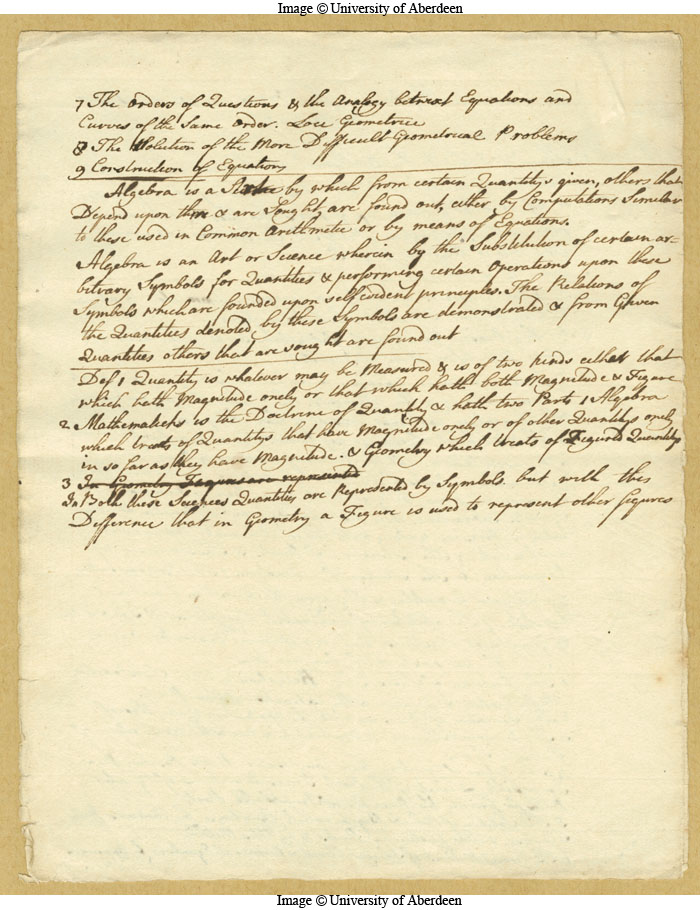 Image © University of Aberdeen
7 The orders of Questions & the Analogy betwixt Equations and
Curves of the Same Order. Loci Geometrici
8 The Solution of the More Difficult Geometrical Problems
9 Construction of Equations
Algebra is a by which from certain Quantitys given, others that
Depend upon them & are Sought, are found out, either by Computations Similar
to these used in Common Arithmetic or by means of Equations.
Algebra is an Art or Science wherein by the Substitution of certain ar-
bitrary Symbols for Quantities & performing certain Operations upon these
Symbols which are founded upon self evident principles. The Relations of
the Quantities denoted by these Symbols are demonstrated & from Given
Quantities others that are sought are found out
Def 1 Quantity is whatever may be Measured & is of two kinds either that
which hath Magnitude onely or that which hath both Magnitude & Figure
2 Mathematicks is the Doctrine of Quantity & hath two Parts 1 Algebra
which treats of Quantitys that have Magnitude onely or of other Quantitys onely
in so far as they have Magnitude. & Geometry which treats of Figured Quantity
3 In Geometry Figures are represented
In Both these Sciences Quantitys are Represented by Symbols. but with this
Difference that in Geometry a Figure is used to represent other figures
Image © University of Aberdeen